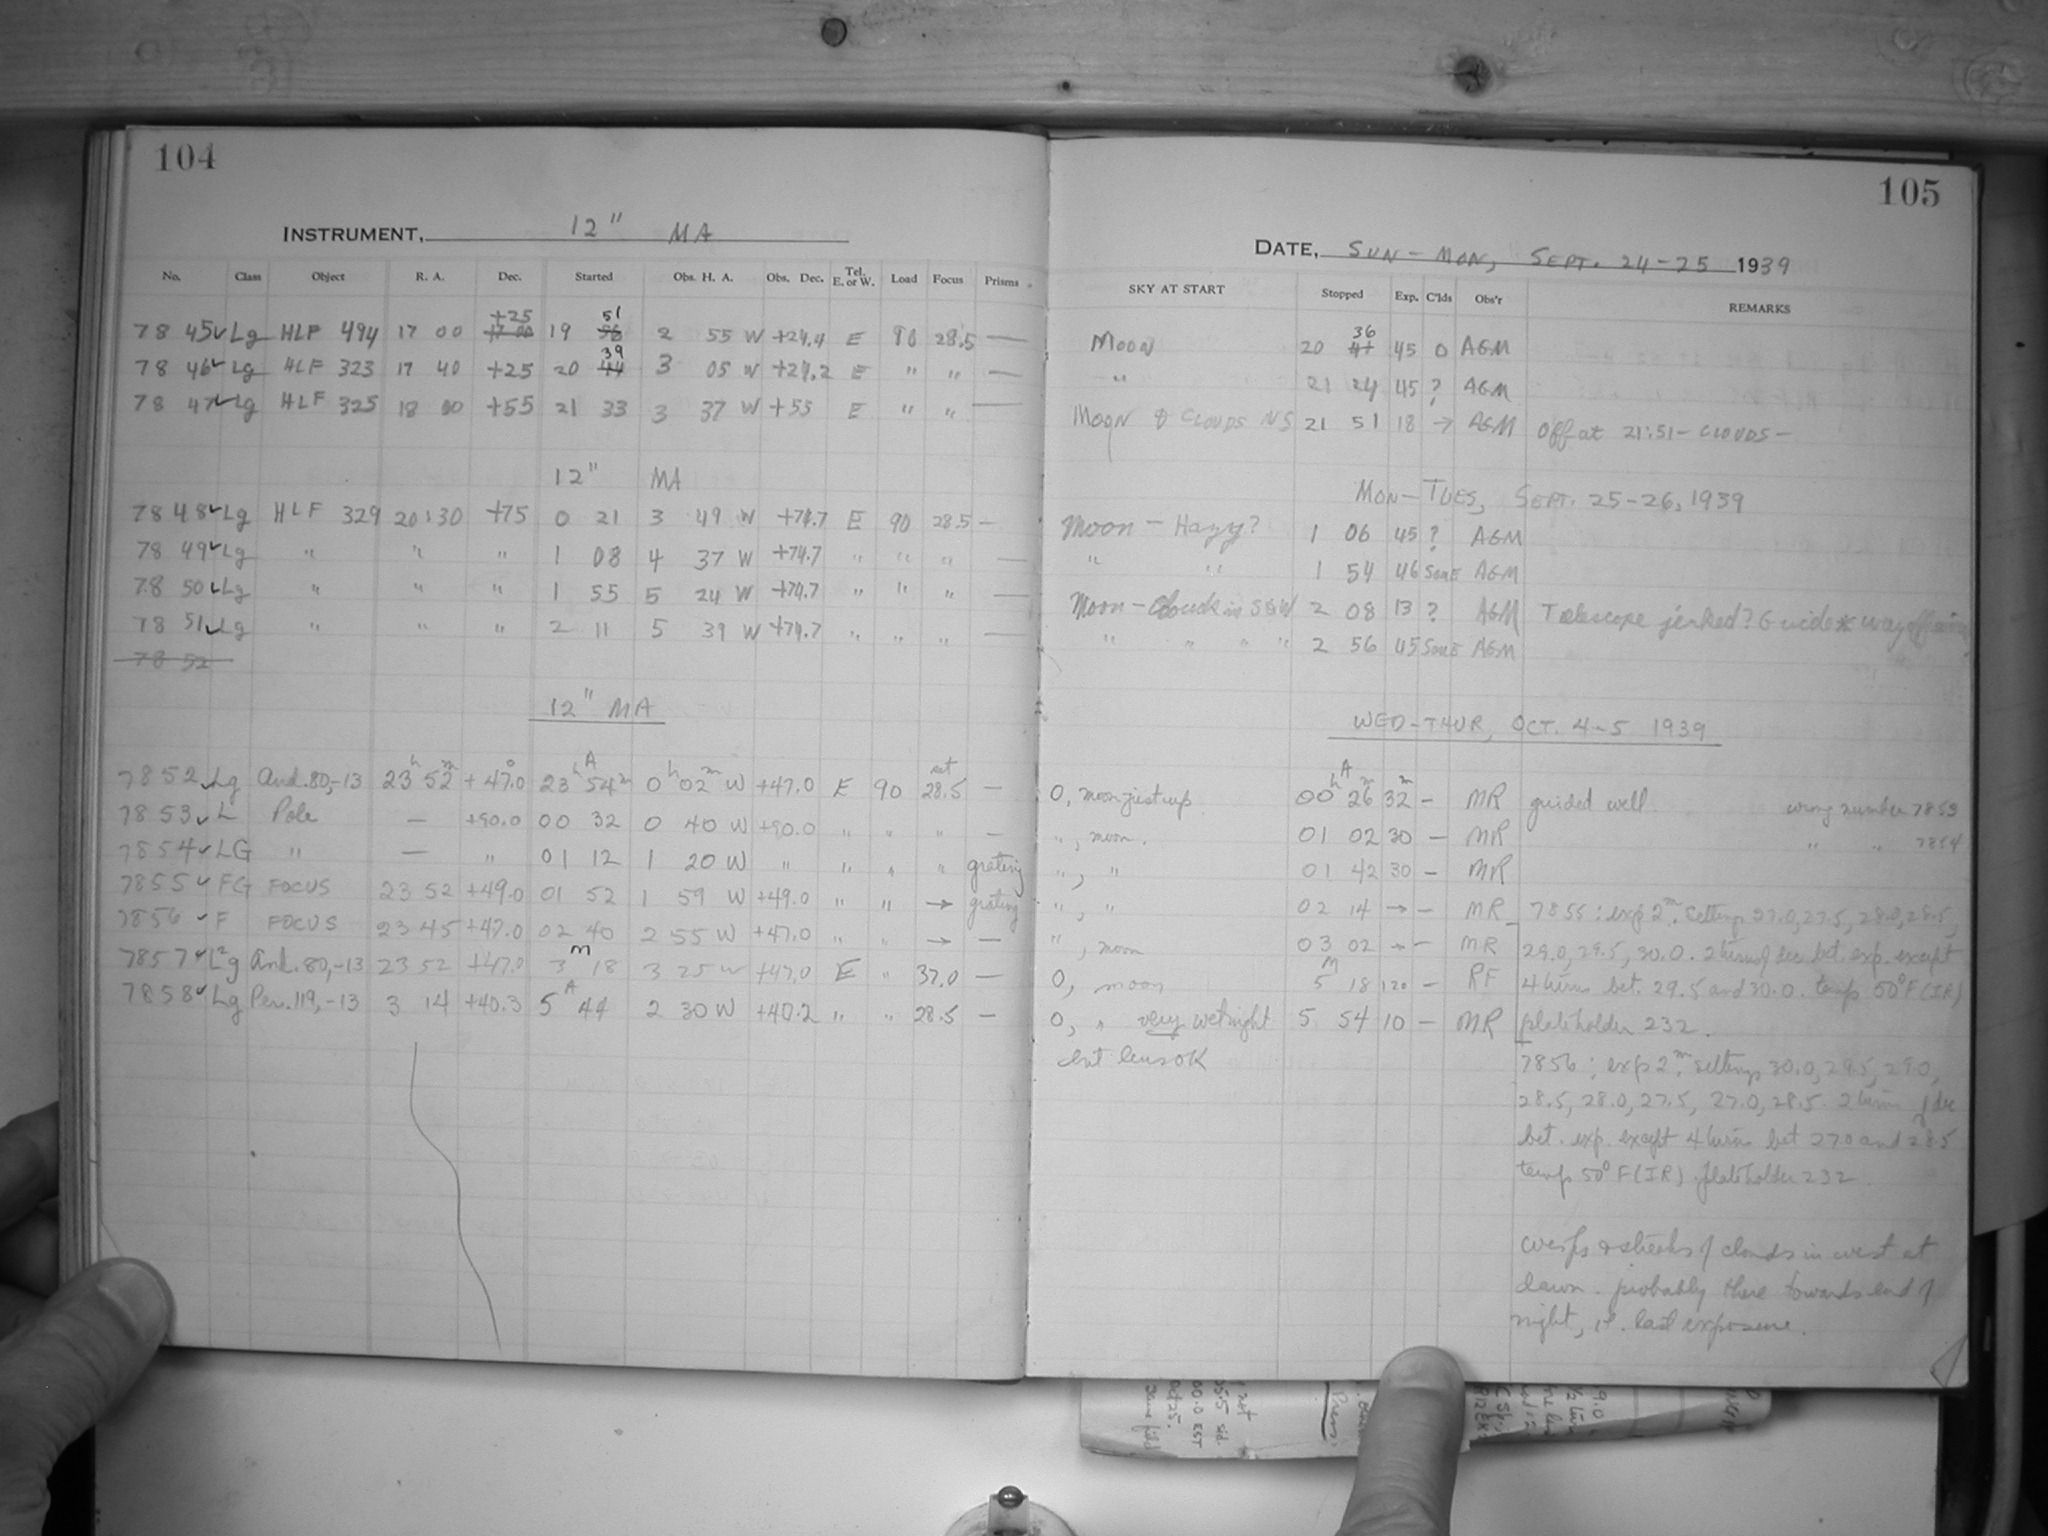 104
INSTRUMENT, 12" MA
No. Class Object R. A. Dec. Started Obs. H. A. Obs. Dec. Tel. E. or W. Load Focus Prisms
78 45 ✓ Lg HLF 494 17 00 +25 19 51 2 55 W +24.4 E 90 28.5 —
78 46 ✓ Lg HLF 323 17 40 +25 20 39 3 05 W +24.2 E " " —
78 47 ✓ Lg HLF 325 18 00 +55 21 33 3 37 W +55 E " " —
12" MA
78 48 ✓ Lg HLF 329 20 30 +75 0 21 3 49 W +74.7 E 90 28.5 —
78 49 ✓ Lg " " " 1 08 4 37 W +74.7 " " " —
78 50 ✓ Lg " " " 1 55 5 24 W +74.7 " " " —
78 51 ✓ Lg " " " 2 11 5 39 W +74.7 " " " —
78 52
12" MA
7852 ✓ Lg And. 80,-13 23h 52m +47.0° 23h A 54m 0h 02m W +47.0 E 90 set 28.5 —
7853 ✓ L Pole — +90.0 00 32 0 40 W +90.0 " " " —
7854 ✓ LG " — " 01 12 1 20 W " " " " grating
7855 ✓ FG FOCUS 23 52 +49.0 01 52 1 59 W +49.0 " " → grating
7856 ✓ F FOCUS 23 45 +47.0 02 40 2 55 W +47.0 " " → —
7857 ✓ L²g And. 80,-13 23 52 +47.0 3 M 18 3 25 W +47.0 E " 37.0 —
7858 ✓ Lg Per. 119,-13 3 14 +40.3 5 A 44 2 30 W +40.2 " " 28.5 —
105
DATE, SUN - MON, SEPT. 24-25 1939
SKY AT START Stopped Exp. C'lds Obs'r REMARKS
Moon 20 36 45 0 AGM
" 21 24 45 ? AGM
MOON & CLOUDS NS 21 51 18 → AGM Off at 21:51 - CLOUDS -
MON - TUES, SEPT. 25-26, 1939
Moon - Hazy? 1 06 45 ? AGM
" " 1 54 46 SOME AGM
Moon - Clouds in S&W 2 08 13 ? AGM Telescope jerked? Guide * way off
" " " " 2 56 45 SOME AGM
WED-THUR, OCT. 4-5 1939
0, moon just up 00h A 26m 32m — MR guided well. wrong number 7853
", moon. 01 02 30 — MR " " 7854
", " 01 42 30 — MR
", " 02 14 → — MR 7855: exp 2m. settings 27.0, 27.5, 28.0, 28.5,
", moon 03 02 → — MR 29.0, 29.5, 30.0. 2 turns of dec bet. exp. except
0, moon 5 M 18 120 — RF 4 turns bet. 29.5 and 30.0. temp 50°F (IR)
0, " very wet night 5 54 10 — MR plateholder 232.
but lens OK
7856: exp 2m. settings 30.0, 29.5, 29.0,
28.5, 28.0, 27.5, 27.0, 28.5. 2 turns of dec
bet. exp. except 4 turns bet 27.0 and 28.5
temp 50°F (IR). plateholder 232.
wisps & streaks of clouds in west at
dawn. probably there towards end of
night, i.e. last exposure.